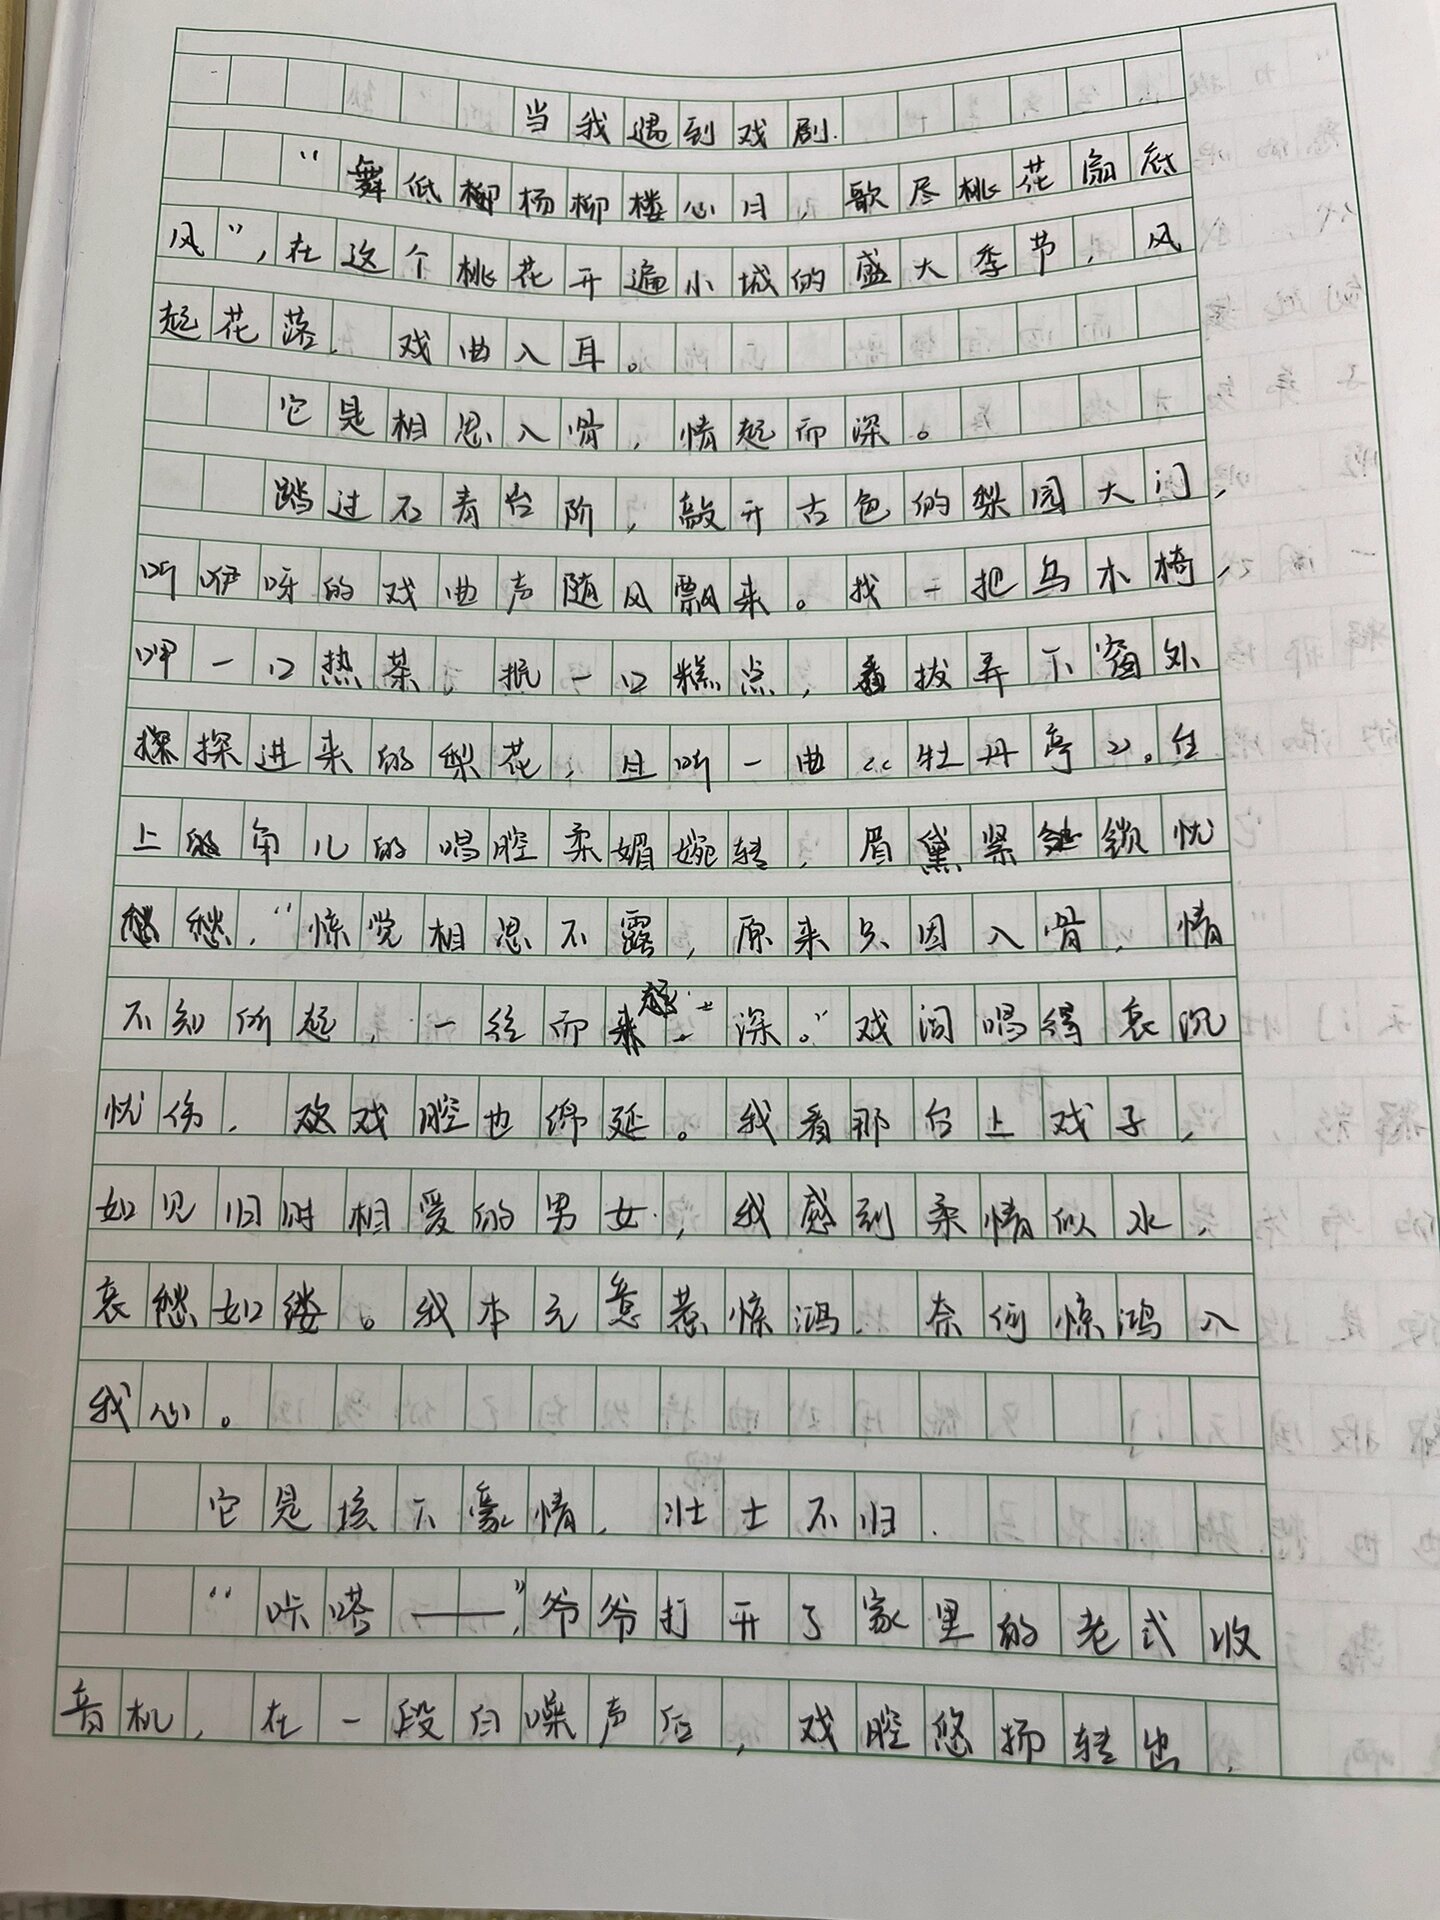 当我遇到戏剧.
“舞低杨柳楼心月，歌尽桃花扇底
风”，在这个桃花开遍小城的盛大季节，风
起花落，戏曲入耳。
它是相思入骨，情起而深。
踏过石青台阶，敲开古色的梨园大门，
听咿呀的戏曲声随风飘来。找一把乌木椅，
呷一口热茶，抿一口糕点，拔弄下窗外
探进来的梨花，且听一曲《牡丹亭》。台
上的角儿的唱腔柔媚婉转，眉黛紧锁忧
愁，“惊觉相思不露，原来只因入骨，情
不知所起，一往而起深。”戏词唱得哀沉
忧伤，戏腔也绵延。我看那台上戏子，
如见旧时相爱的男女，我感到柔情似水，
哀愁如缕。我本无意惹惊鸿，奈何惊鸿入
我心。
它是垓下豪情，壮士不归.
“咔嗒——”，爷爷打开了家里的老式收
音机，在一段白噪声后，戏腔悠扬转出，